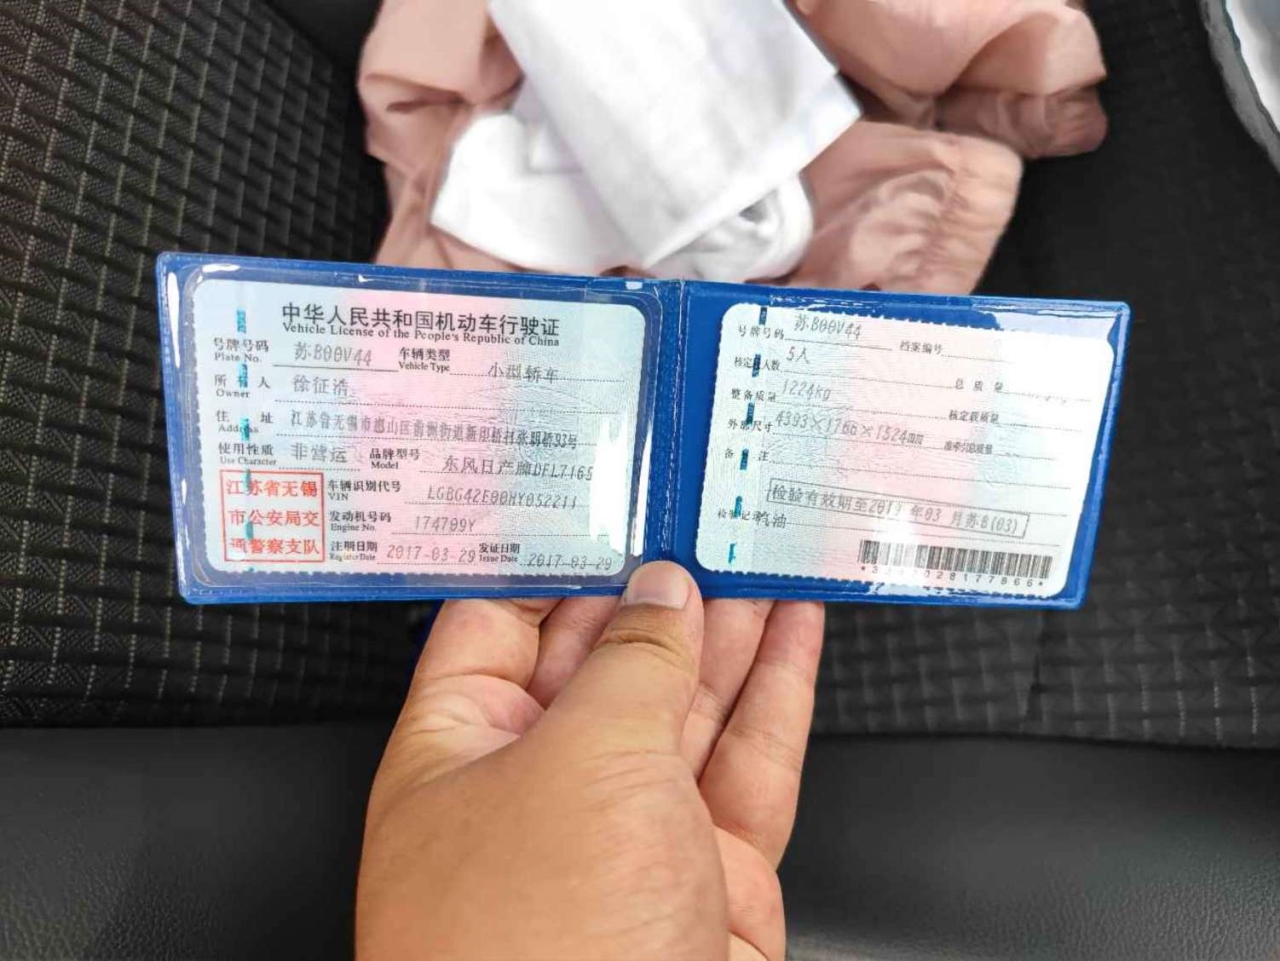 中华人民共和国机动车行驶证
Vehicle License of the People's Republic of China
号牌号码 苏B00V44 车辆类型 小型轿车
Plate No. Vehicle Type
所有人 徐征浩
Owner
住址 江苏省无锡市惠山区前洲街道新印桥村张明桥93号
Address
使用性质 非营运 品牌型号 东风日产牌DFL7165
Use Character Model
江苏省无锡
市公安局交
通警察支队
车辆识别代号 LGBG42E00HY052211
VIN
发动机号码 174709Y
Engine No.
注册日期 2017-03-29 发证日期 2017-03-29
Register Date Issue Date
号牌号码 苏B00V44 档案编号
核定载人数 5人 总质量
整备质量 1224kg 核定载质量
外廓尺寸 4393×1766×1524mm 准牵引总质量
备注
检验有效期至2019年03月苏B(03)
检验记录 汽油